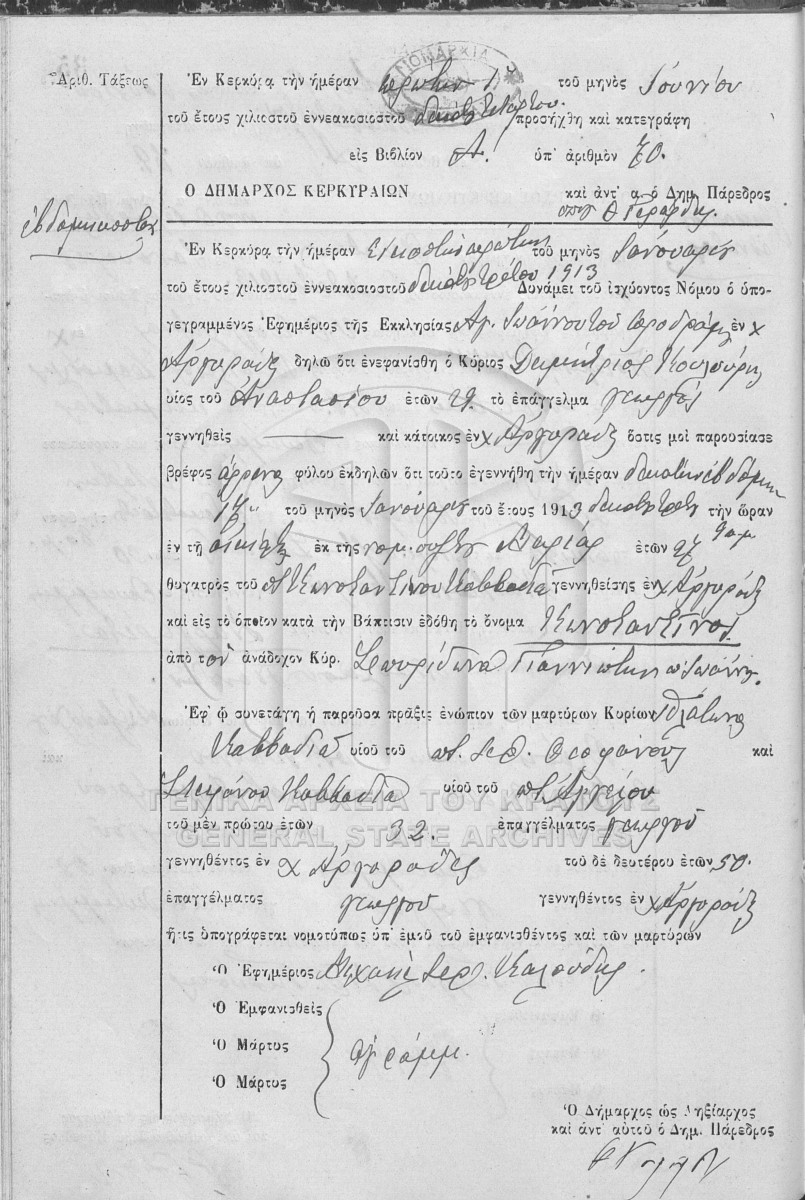 ΝΟΜΑΡΧΙΑ
Ἀριθ. Τάξεως
Ἐν Κερκύρᾳ τὴν ἡμέραν πρώτην 1 τοῦ μηνὸς Ἰουνίου
τοῦ ἔτους χιλιοστοῦ ἐννεακοσιοστοῦ δεκάτου τετάρτου προσήχθη καὶ κατεγράφη
εἰς Βιβλίον Α. ὑπ' ἀριθμὸν 70.
Ο ΔΗΜΑΡΧΟΣ ΚΕΡΚΥΡΑΙΩΝ καὶ ἀντ' α. ὁ Δημ. Πάρεδρος
ἑβδομηκοστὴ
Ἐν Κερκύρᾳ τὴν ἡμέραν Εἰκοστὴν πρώτην τοῦ μηνὸς Ἰανουαρίου
τοῦ ἔτους χιλιοστοῦ ἐννεακοσιοστοῦ δεκάτου τρίτου 1913 Δυνάμει τοῦ ἰσχύοντος Νόμου ὁ ὑπο-
γεγραμμένος Ἐφημέριος τῆς Εκκλησίας Αγ. Ἰωάννου τοῦ Προδρόμου ἐν χ
Ἀργυράδες δηλῶ ὅτι ἐνεφανίσθη ὁ Κύριος Δημήτριος Κουλούρης
υἱὸς τοῦ Ἀναστασίου ἐτῶν 29. τὸ ἐπάγγελμα γεωργὸς
γεννηθεὶς — καὶ κάτοικος ἐν χ Ἀργυράδες ὅστις μοὶ παρουσίασε
βρέφος ἄρρενος φύλου ἐκδηλῶν ὅτι τοῦτο ἐγεννήθη τὴν ἡμέραν δεκάτην ἑβδόμην
17 τοῦ μηνὸς Ἰανουαρίου τοῦ ἔτους 1913 δεκάτου τρίτου τὴν ὥραν
ἐν τῇ οἰκίᾳ ἐκ τῆς νομ. συζύγου Μαρίας ἐτῶν 27
θυγατρὸς τοῦ π. Κωνσταντίνου Καββαδία γεννηθείσης ἐν χ Ἀργυράδες
καὶ εἰς τὸ ὁποῖον κατὰ τὴν Βάπτισιν ἐδόθη τὸ ὄνομα Κωνσταντῖνος.
ἀπὸ τὸν ἀνάδοχον Κύρ. Σπυρίδωνα Γιαννιώτην π. Ἰωάννου.
Ἐφ' ᾧ συνετάγη ἡ παροῦσα πρᾶξις ἐνώπιον τῶν μαρτύρων Κυρίων Πλάτωνα
Καββαδία υἱοῦ τοῦ π. Θεοφάνους καὶ
Στεφάνου Καββαδία υἱοῦ τοῦ
ΓΕΝΙΚΑ ΑΡΧΕΙΑ ΤΟΥ ΚΡΑΤΟΥΣ
τοῦ μὲν πρώτου ἐτῶν 32. ἐπαγγέλματος γεωργοῦ
GENERAL STATE ARCHIVES
γεννηθέντος ἐν χ Ἀργυράδες τοῦ δὲ δευτέρου ἐτῶν 50.
ἐπαγγέλματος γεωργοῦ γεννηθέντος ἐν χ Ἀργυράδες
ἥτις ὑπογράφεται νομοτύπως ὑπ' ἐμοῦ τοῦ ἐμφανισθέντος καὶ τῶν μαρτύρων
Ὁ Ἐφημέριος Μιχαὴλ Ιερ. Καλούδης.
Ὁ Ἐμφανισθεὶς
Ὁ Μάρτυς ἀγράμμ.
Ὁ Μάρτυς
Ὁ Δήμαρχος ὡς Ληξίαρχος
καὶ ἀντ' αὐτοῦ ὁ Δημ. Πάρεδρος